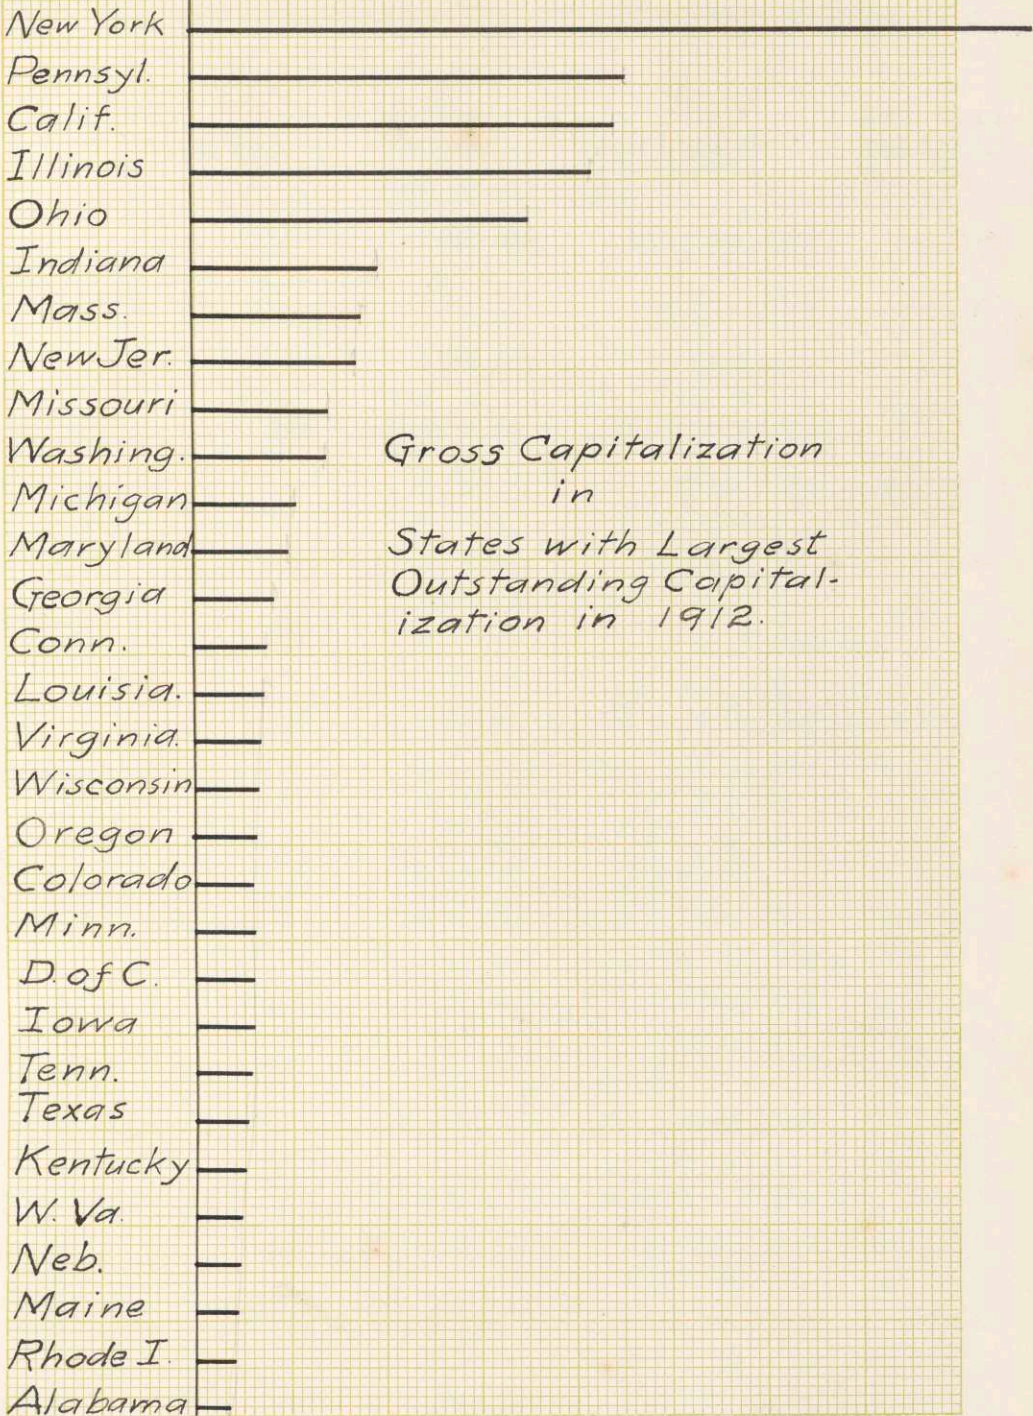 New York
Pennsyl.
Calif.
Illinois
Ohio
Indiana
Mass.
New Jer.
Missouri
Washing.
Michigan
Maryland
Georgia
Conn.
Louisia.
Virginia.
Wisconsin
Oregon
Colorado
Minn.
D. of C.
Iowa
Tenn.
Texas
Kentucky
W. Va.
Neb.
Maine
Rhode I.
Alabama
Gross Capitalization
in
States with Largest
Outstanding Capital-
ization in 1912.